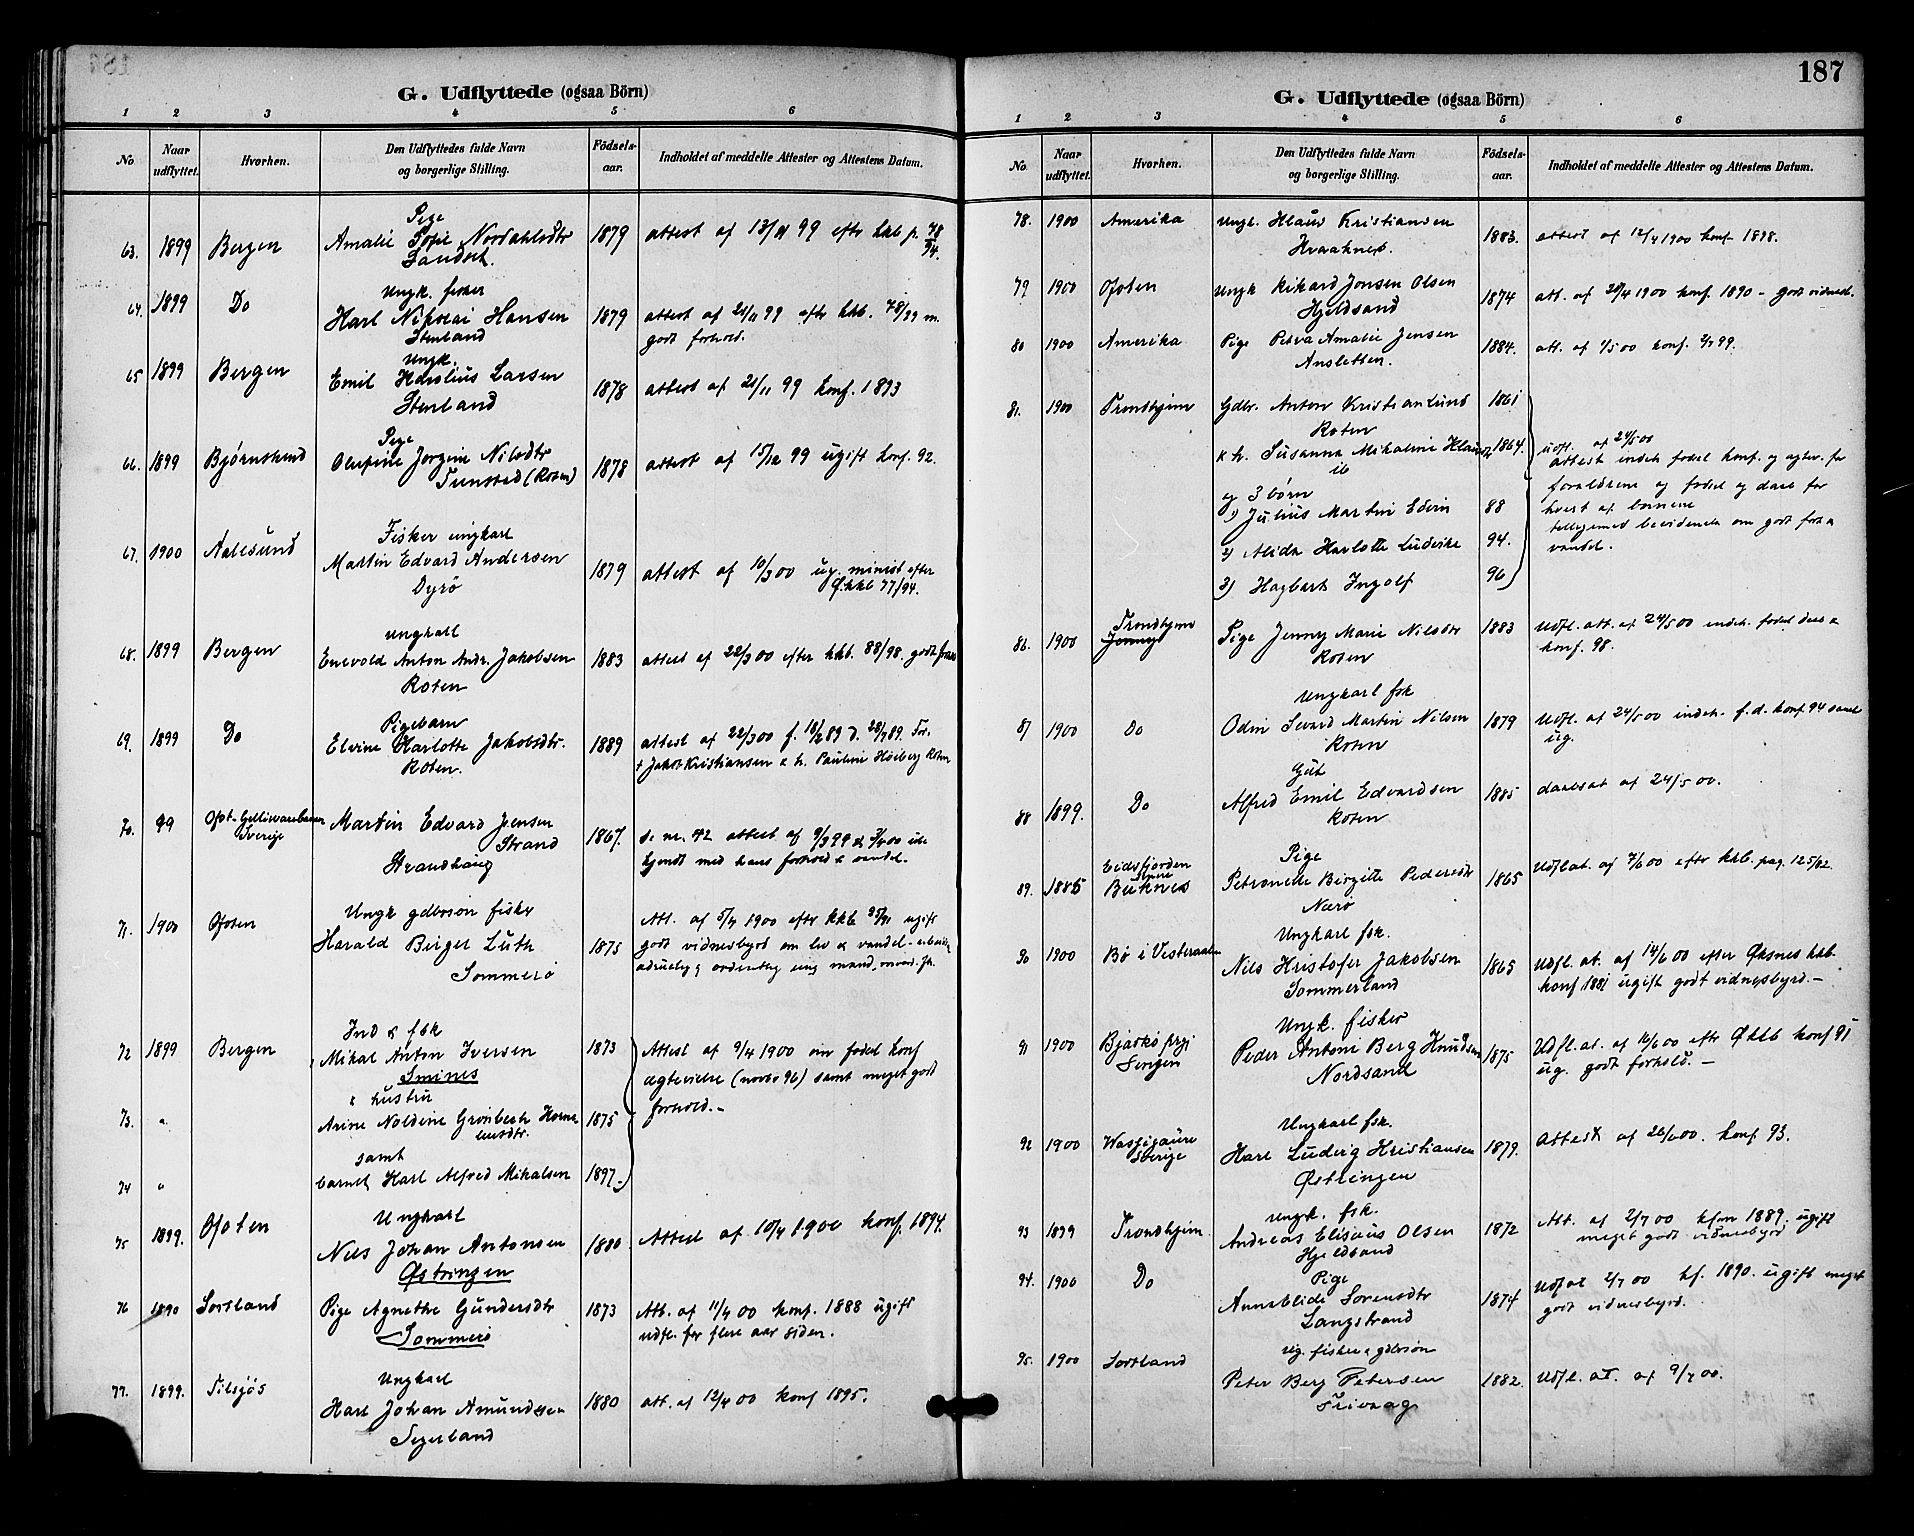 G. Udflyttede (ogsaa Börn)
1 2 3 4 5 6
No Naar udflyttet. Hvorhen. Den Udflyttedes fulde Navn og borgerlige Stilling. Födsels-aar. Indholdet af meddelte Attester og Attestens Datum.
Pige
63. 1899 Bergen Amalie Sofie Nordahlsdtr 1879 attest af 13/11 99 efter kkb p. 78/94.
Sandset.
Ungk. fisker
64. 1899 Do Karl Nikolai Hansen 1879 attest af 21/11 99 efter kkb. 78/99 m.
Stenland godt forhold.
Ungk.
65 1899 Bergen Emil Larsen 1878 attest af 21/11 99 konf. 1893
Stenland
Pige
66. 1899 Bjørnskind Olufine Jorgine Nilsdtr 1878 attest af 15/12 99 ugift konf. 92.
Tunstad (Roten)
Fisker ungkarl
67. 1900 Aalesund Martin Edvard Andersen 1879 attest af 10/3 00 ug. minist efter
Dyrø Ø.kkb 77/94.
ungkarl
68. 1899 Bergen Enevold Anton Andr. Jakobsen 1883 attest af 22/3 00 efter kkb. 88/98. godt
Roten
Pigebarn
69. 1899 Do Elvine Karlotte Jakobsdtr. 1889 attest af 22/3 00 f. 18/2 89 d. 28/7 89. For.
Roten. Jakob Kristiansen & h. Pauline Høiberg Roten
70. 99 Ofot-Gellivarebanen Martin Edvard Jensen 1867. s. nr. 42 attest af 9/3 99 & 3/4 00
Sverige Strand kjendt med hans forhold & vandel.
Strandhaug
Ungk gdbrsøn fisker
71. 1900 Ofoten Harald Birger Luth 1875 Att. af 5/4 1900 efter kkb ugift
Sommerø godt vidnesbyrd om liv & vandel -
ædruelig & ordentlig ung mand,
Ind & fsk
72 1899 Bergen Mikal Anton Iversen 1873 Attest af 9/4 1900 om fødsel konf
Smines ægtevielse (96) samt meget godt
& hustru forhold. -
73. " Arine Noldine Grønbech 1875
samt
74 " barnet Karl Alfred Mikalsen 1897 -
Ungkarl
75 1899. Ofoten Nils Johan Antonsen 1880 Attest af 10/4 1900 konf. 1894.
Østringen
76 1890 Sortland Pige Agnethe Gundersdtr 1873 Att. af 11/4 00 konf. 1888 ugift
Sommerø udfl. for flere aar siden.
Ungkarl
77. 1899. Karl Johan Amundsen 1880 att. af 12/4 00 konf 1895.
Segerland
187
G. Udflyttede (ogsaa Börn)
1 2 3 4 5 6
No. Naar udflyttet. Hvorhen. Den Udflyttedes fulde Navn og borgerlige Stilling. Födsels-aar. Indholdet af meddelte Attester og Attestens Datum.
78. 1900 Amerika Ungk. Klaus Kristiansen 1883. attest af 12/4 1900 konf 1898.
Kraaknes.
79 1900 Ofoten Ungk Rikard Jonsen Olsen 1874 att. af 20/4 1900 konf. 1890 - godt vidnesb.
Hjeldsand
80 1900 Amerika Pige Petra Amalie Jensen 1884. att. af 1/5 00 konf. 2/7 99.
Ansletten.
81. 1900 Trondhjem Gdbr. Anton Kristian Lund 1861
Roten
& h. Susanna Mikaline 1864. udfl. af 24/5 00
ib attest indeh fødsel konf. og ægtev. for
og 3 børn forældrene og fødsel og daab for
1) Julius Martin Edvin 88 hvert af børnene
tilligemed bevidnelse om godt forh &
2) Alida Karlotte Ludvike 94. vandel.
3) Hagbart Ingolf 96
Trondhjem
86. 1900 Jenny Pige Jenny Marie Nilsdtr 1883 Udfl. att. af 24/5 00 indeh. fødsel daab &
Roten konf. 98.
Ungkarl fsk
87 1900 Do Odin Sevard Martin Nilsen 1879 Udfl. af 24/5 00 indeh. f. d. konf 94 samt
Roten ug.
Gut
88 1899. Do Alfred Emil Edvardsen 1885 daabsat af 24/5 00.
Roten
Eidsfjorden Pige
89. 1885 Buknes Petronelle Birgitte Pedersdtr 1865 Udflat. af 7/6 00 efter kkb. pag. 125/82.
Nærø
Ungkarl fsk.
90 1900 Bø i Vesteraalen Nils Kristofer Jakobsen 1865 Udfl. at. af 14/6 00 efter Øksnes kkb.
Sommerland konf 1881 ugift godt vidnesbyrd. -
Ungk. fisker
91 1900 Bjarkø prgj Peder Antoni Berg Knudsen 1875 Udfl. at. af 16/6 00 efter Økkb konf 91
Senjen Nordsand ug. godt forhold. -
Ungkarl fsk.
92 1900 Wassijaure Karl Ludvig Kristiansen 1879. Attest af 26/6 00. konf 93.
Sverige Østringen
Ungk. fsk.
93 1899 Trondhjem. Andreas Elisæus Olsen 1872 Att. af 2/7 00 kfm 1889. ugift
Hjeldsand meget godt vidnesbyrd
Pige
94. 1900 Do Annablide Sorensdtr 1874 Udfat 2/7 00 kf. 1890. ugift meget
Langstrand godt vidnesbyrd.
ug. fisker & gdbrsøn
95. 1900 Sortland Peter Berg Petersen 1882. Udfl. at. af 9/7 00.